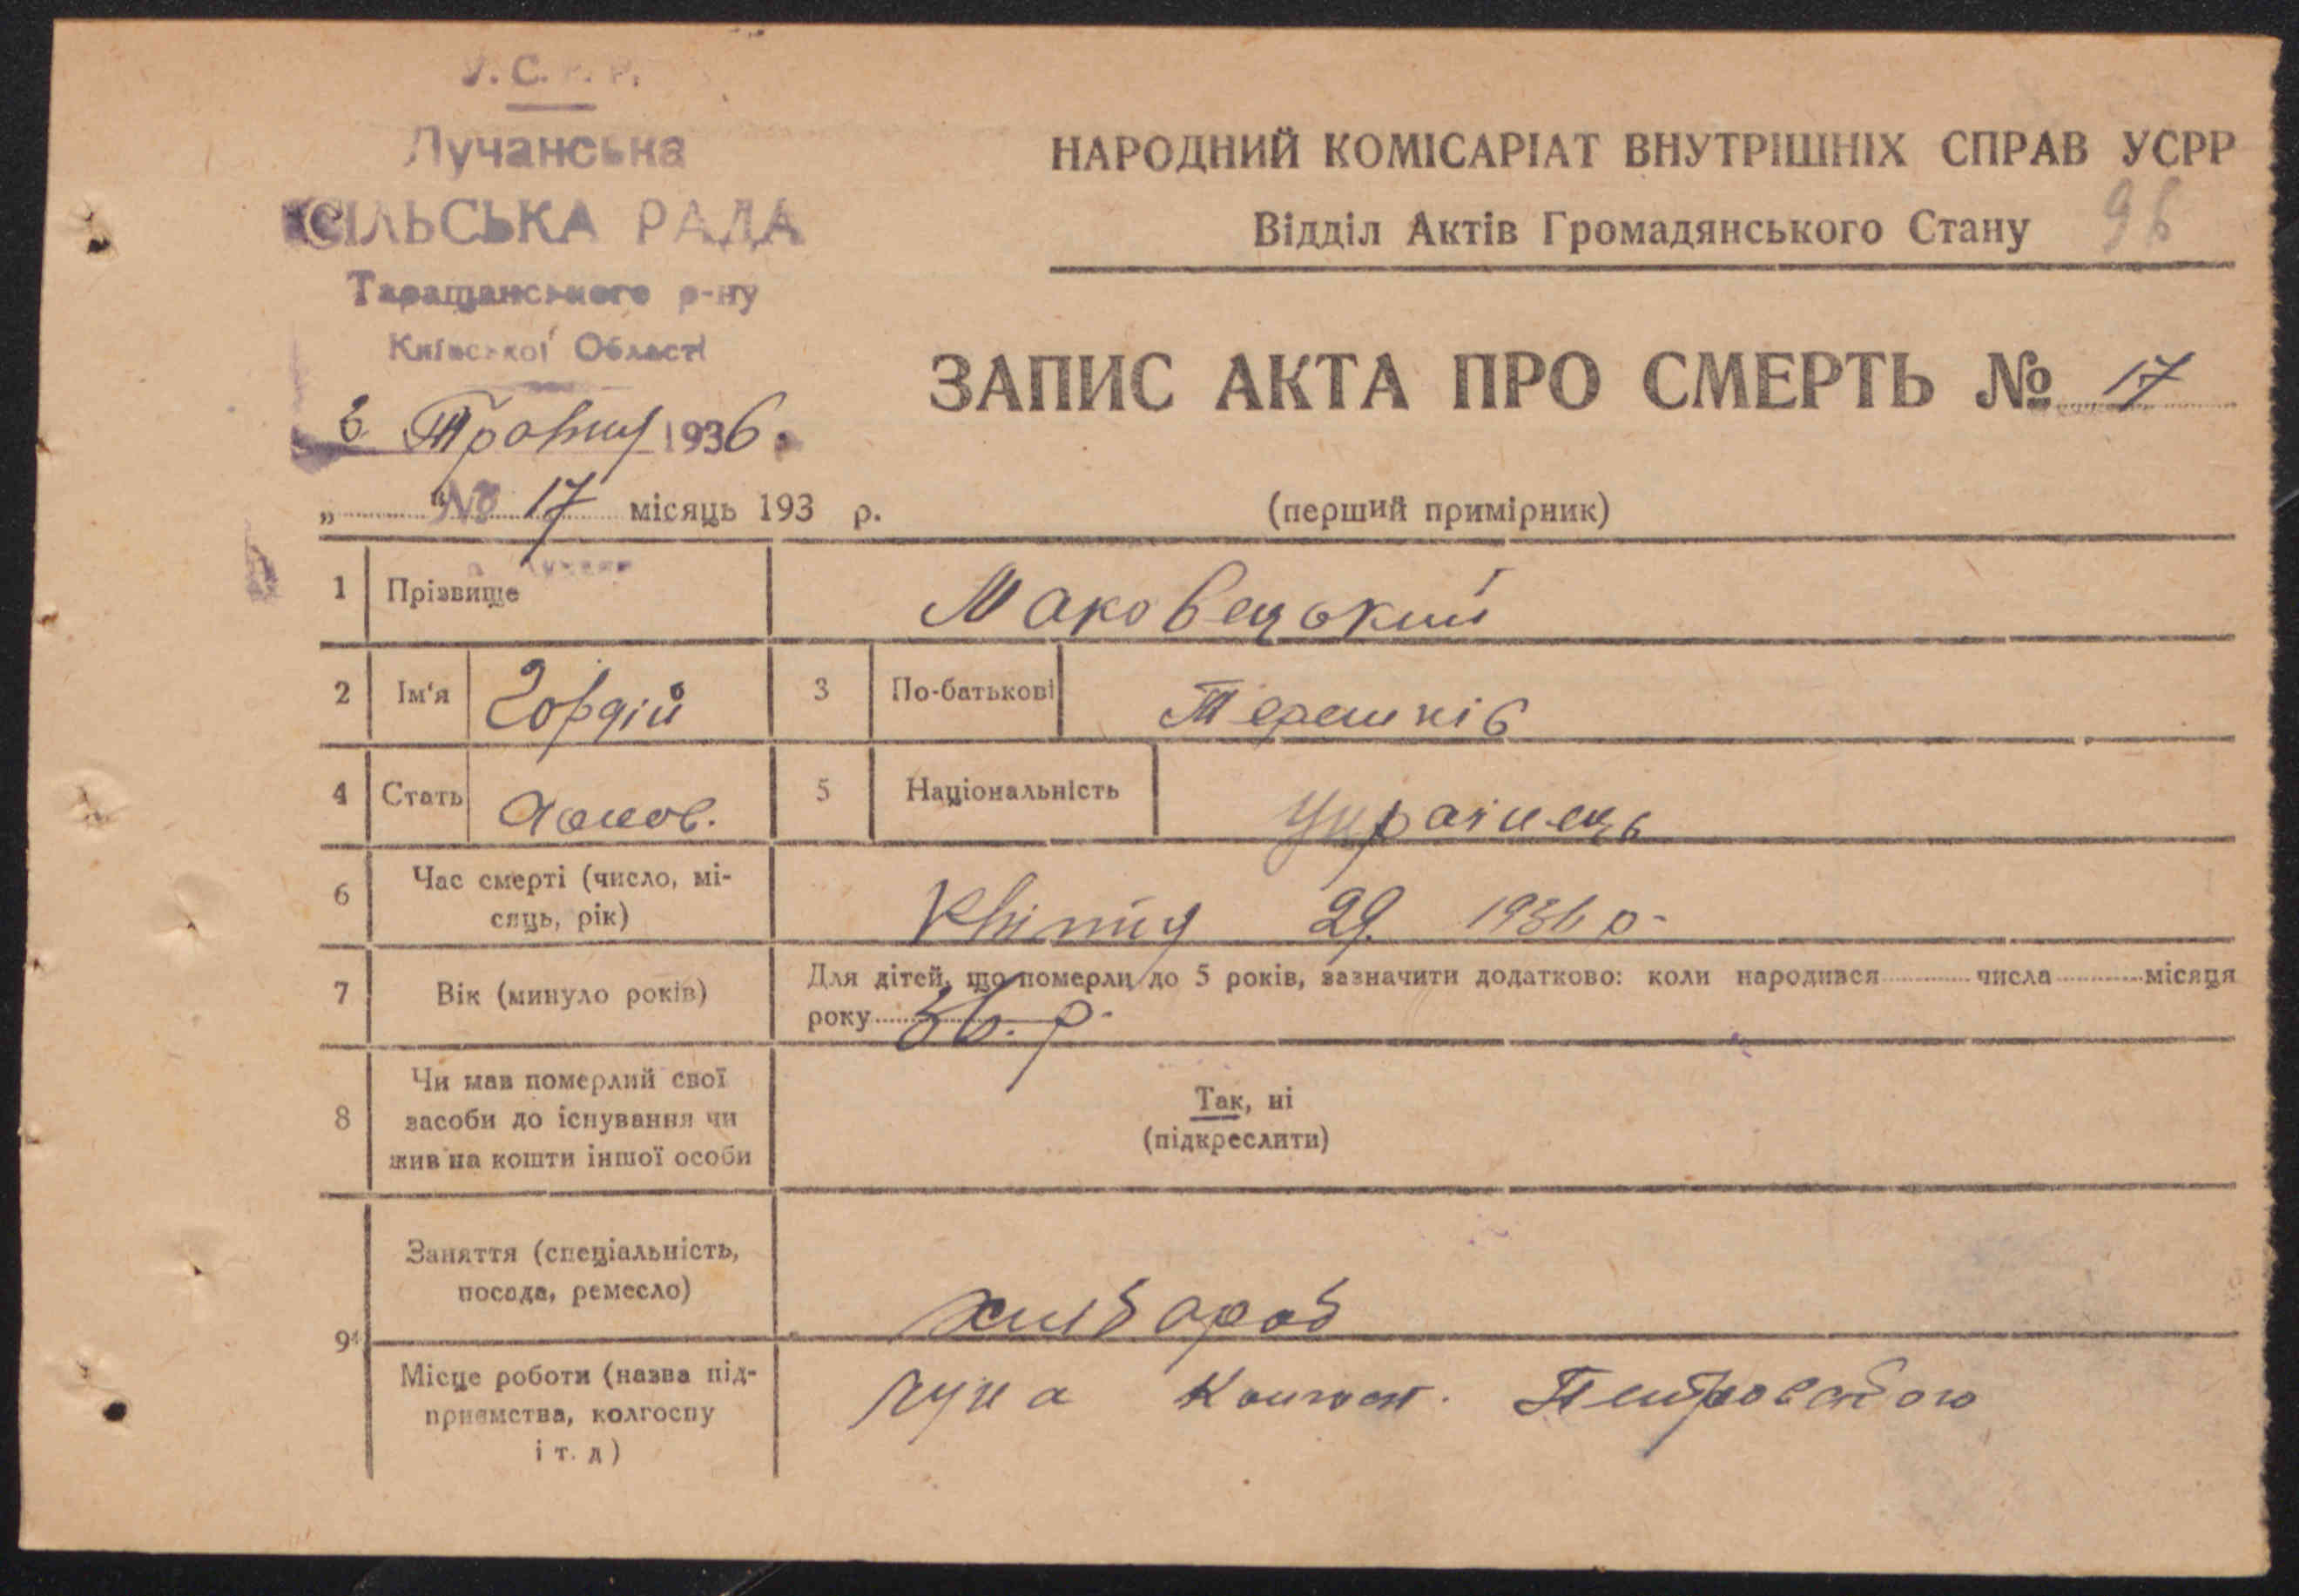 У.С.Р.Р.
Лучанська
СІЛЬСЬКА РАДА
Таращанського р-ну
Київської Області
НАРОДНИЙ КОМІСАРІАТ ВНУТРІШНІХ СПРАВ УСРР
Відділ Актів Громадянського Стану 96
ЗАПИС АКТА ПРО СМЕРТЬ № 17
3 Травня 1936.
„ № 17 місяць 193 р.
(перший примірник)
1 Прізвище Маковецький
2 Ім'я Гордій 3 По-батькові Терешків
4 Стать Чолов. 5 Національність Українець
6 Час смерті (число, мі-
сяць, рік) Квітня 29. 1936 р.
7 Вік (минуло років) Для дітей, що померли до 5 років, зазначити додатково: коли народився числа місяця
року 36. р.
8 Чи мав померлий свої
засоби до існування чи
жив на кошти іншої особи
Так, ні
(підкреслити)
9 Заняття (спеціальність,
посада, ремесло) хлібороб
Місце роботи (назва під-
приємства, колгоспу
і т. д) Лука Петровського